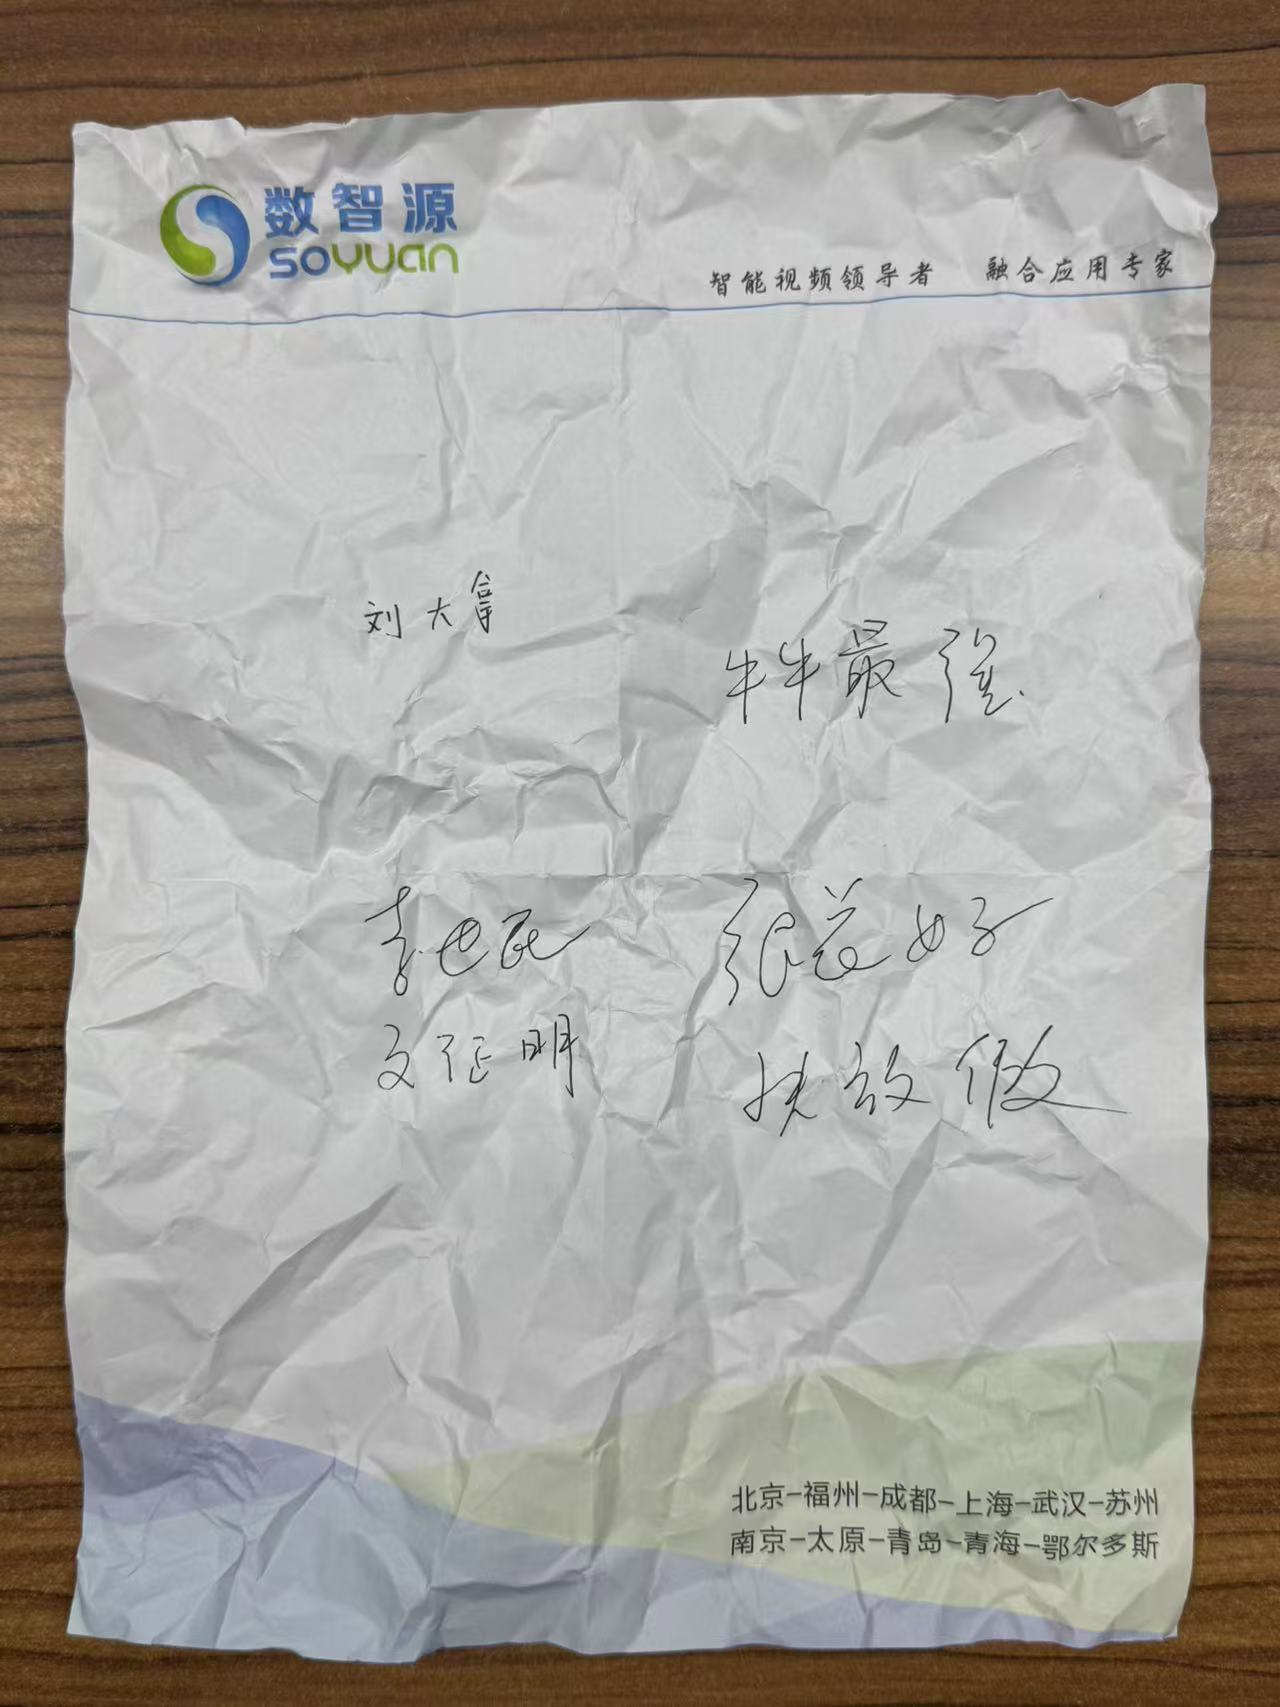 数智源
SOYUAN
智能视频领导者 融合应用专家
刘大拿
牛牛最强
李世民
张益好
文征明
放假
北京-福州-成都-上海-武汉-苏州
南京-太原-青岛-青海-鄂尔多斯